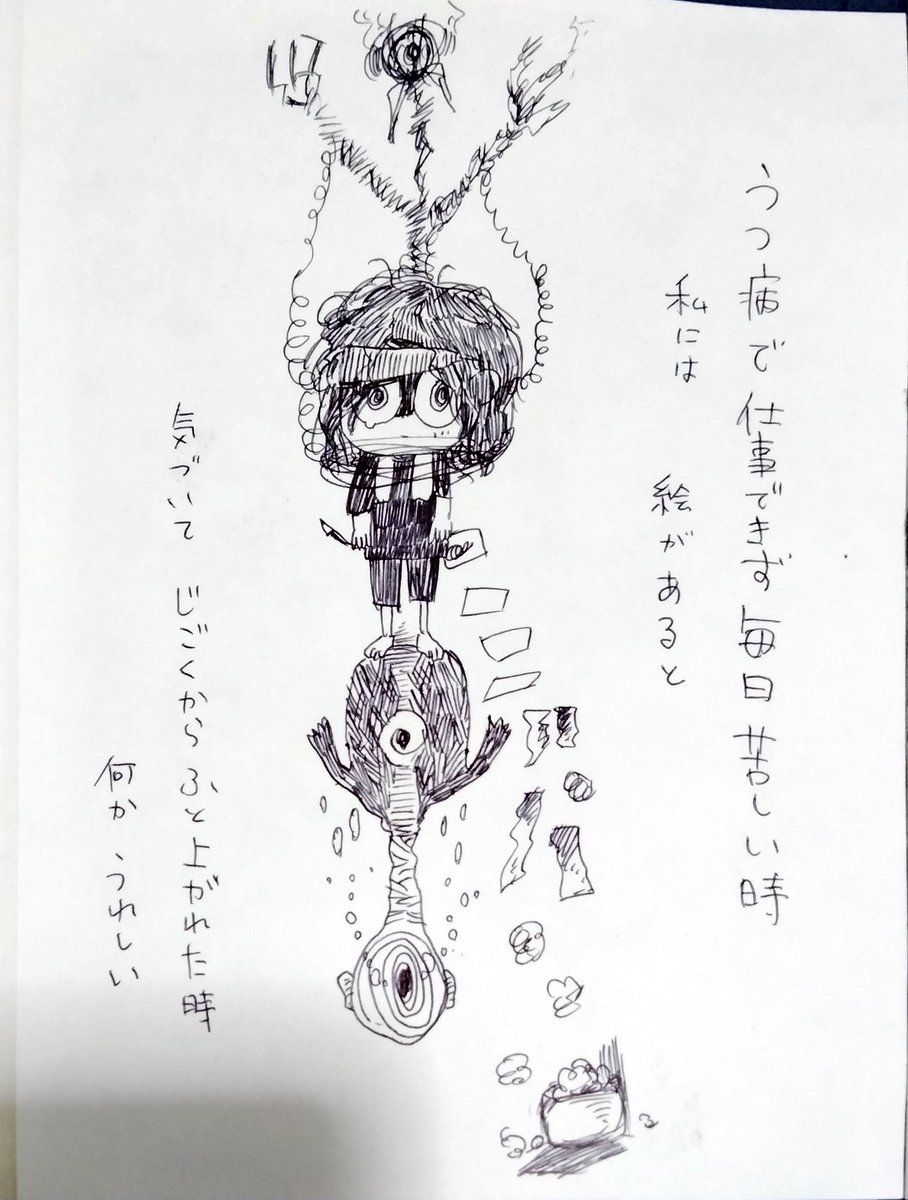 うつ病で仕事できず毎日苦しい時
私には 絵があると
気づいて じごくからふと上がれた時
何かうれしい